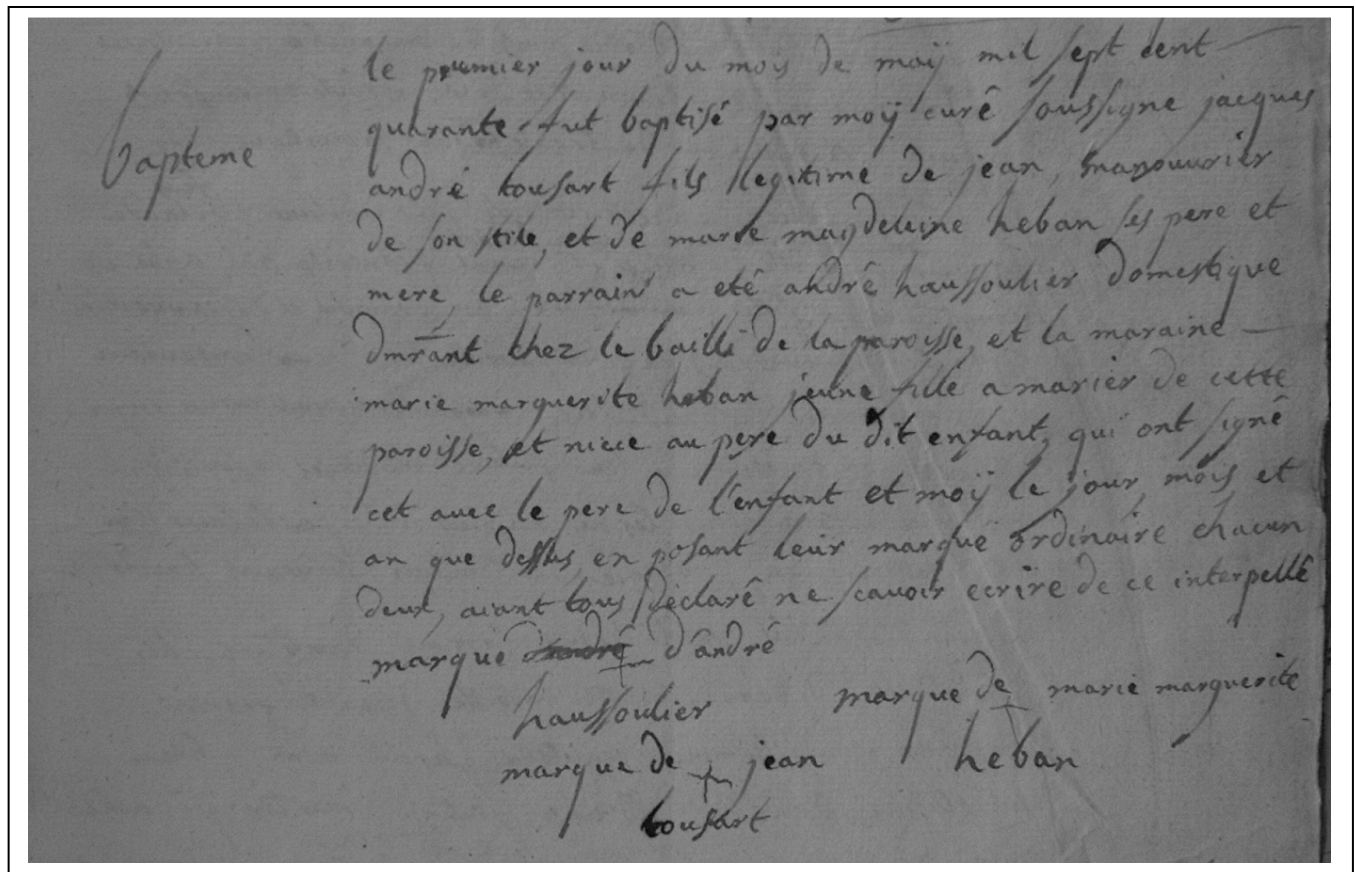 bapteme
le premier jour du mois de maÿ mil sept cent
quarante fut baptisé par moÿ curé soussigne jacques
andré tousart fils legitime de jean, manouurier
de son stile, et de marie magdeleine heban ses pere et
mere, le parrain a eté andré haussoulier domestique
dmrant chez le bailli de la paroisse, et la maraine
marie marguerite heban jeune fille a marier de cette
paroisse, et niece au pere du dit enfant, qui ont signé
cet avec le pere de l'enfant et moÿ le jour, mois et
an que dessus, en posant leur marque ordinaire chacun
deux, aiant tous declaré ne scavoir ecrire de ce interpellé
marque d'andré d'andré
haussoulier marque de marie marguerite
marque de jean heban
tousart